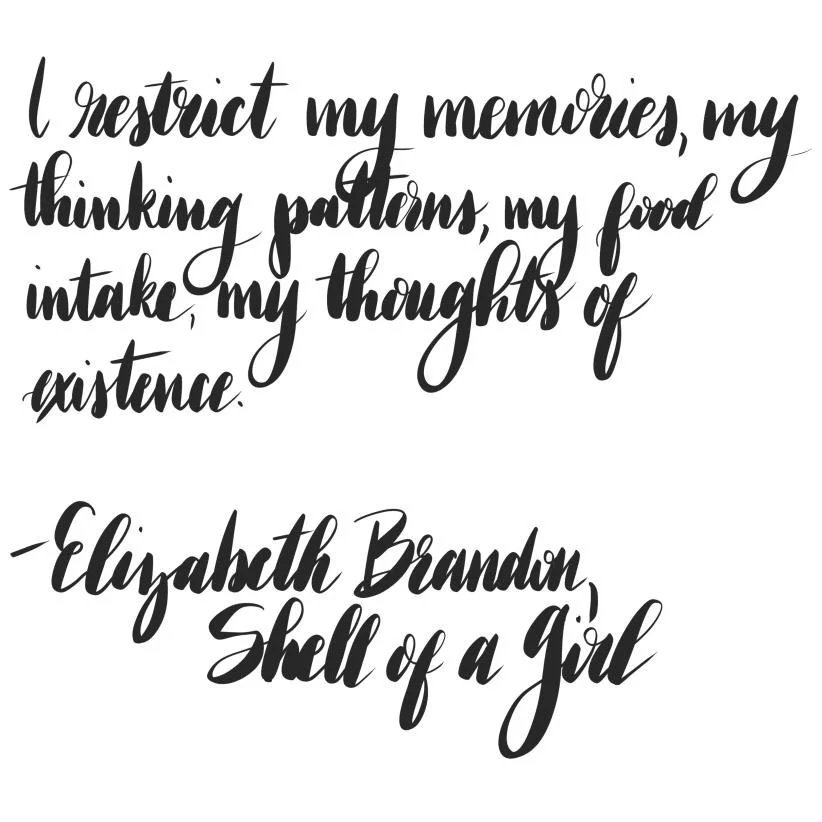 I restrict my memories, my
thinking patterns, my food
intake, my thoughts of
existence.
-Elizabeth Brandon,
Shell of a Girl